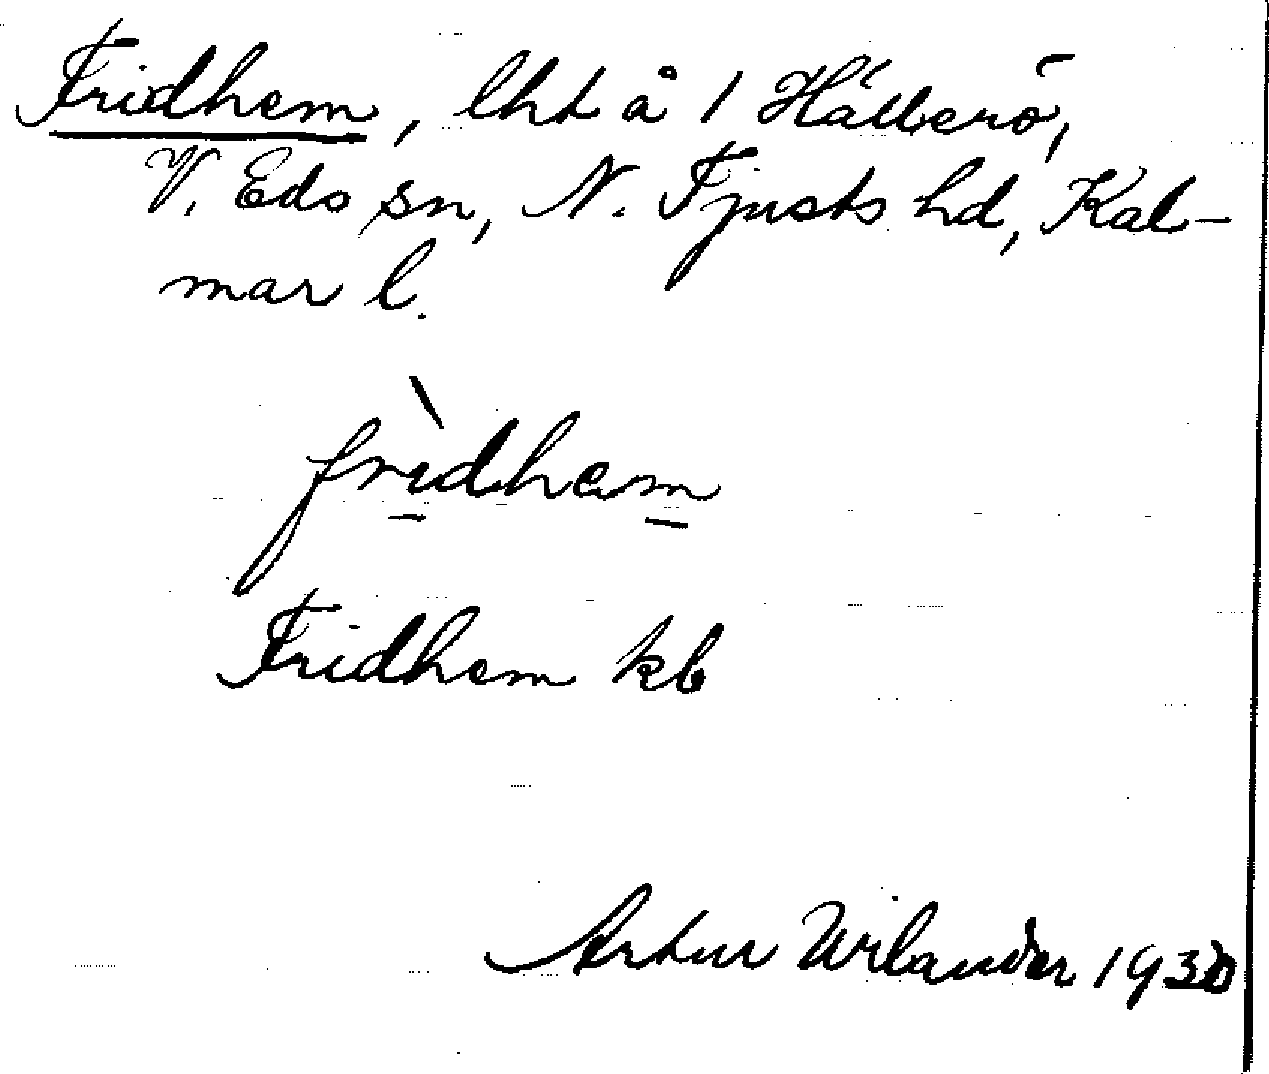 Fridhem, lht å 1 Hälлerö,
V. Eds sn, N. Tjusts hd, Kal-
mar l.
frìdhem
Fridhem kb
Artur Wilander 1930